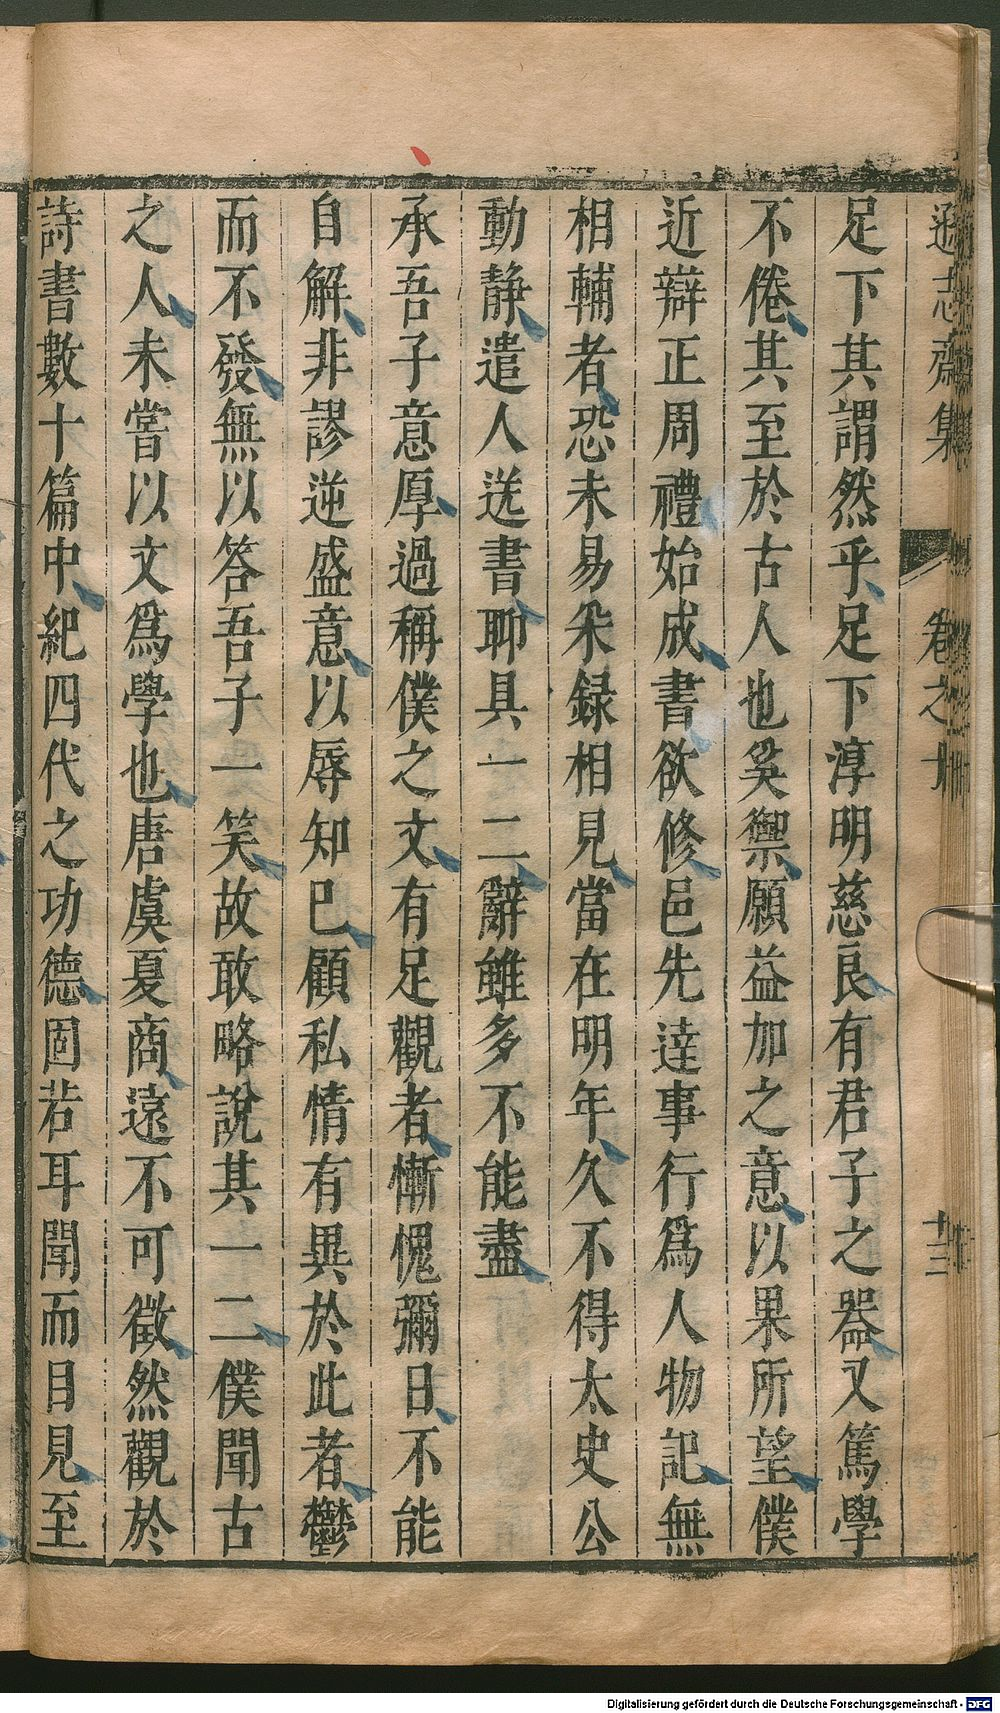 遜志齋集
卷之十
十三
足下其謂然乎足下淳明慈良有君子之器又篤學
不倦其至於古人也奚禦願益加之意以果所望僕
近辯正周禮始成書欲修邑先達事行爲人物記無
相輔者恐未易朵録相見當在明年久不得太史公
動靜遣人送書聊具一二辭雖多不能盡
承吾子意厚過稱僕之文有足觀者慚愧彌日不能
自解非謬逆盛意以辱知巳顧私情有異於此者鬱
而不發無以答吾子一笑故敢略說其一二僕聞古
之人未嘗以文爲學也唐虞夏商遠不可徵然觀於
詩書數十篇中紀四代之功德固若耳聞而目見至
Digitalisierung gefördert durch die Deutsche Forschungsgemeinschaft - DFG